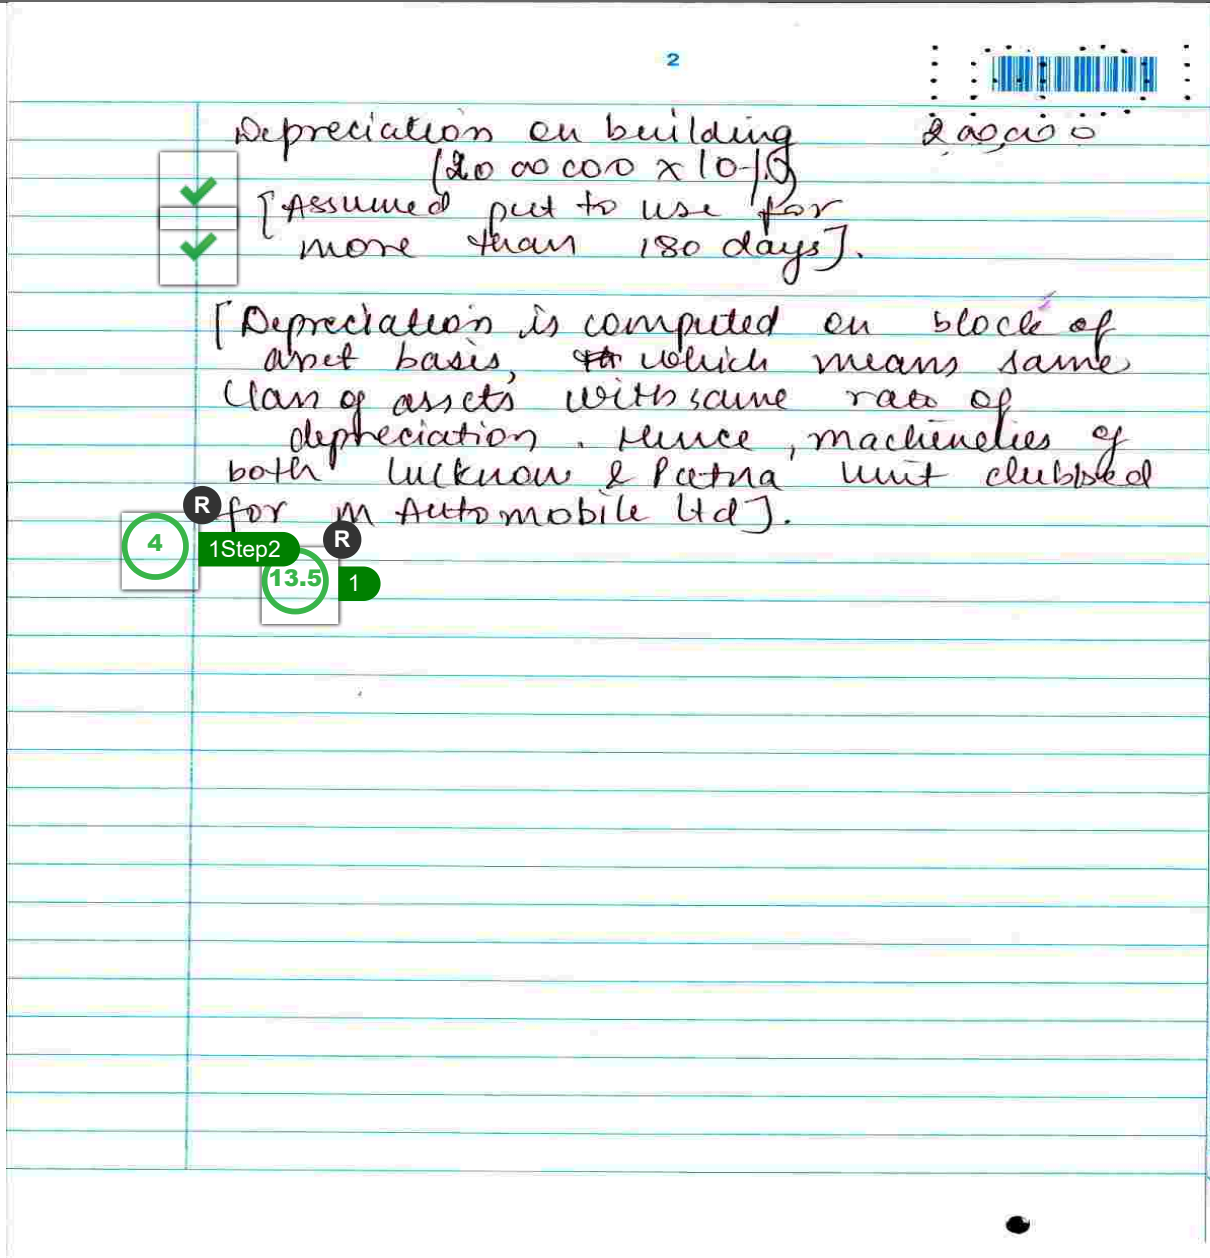 2
Depreciation on building 200,000
(2000000 x 10%)
[Assumed put to use for
more than 180 days].
[Depreciation is computed on block of
asset basis, which means same
Class of assets with same rate of
depreciation. Hence, machineries of
both Lucknow & Patna unit clubbed
for M Automobile Ltd].
R
4 1Step2 R
13.5 1